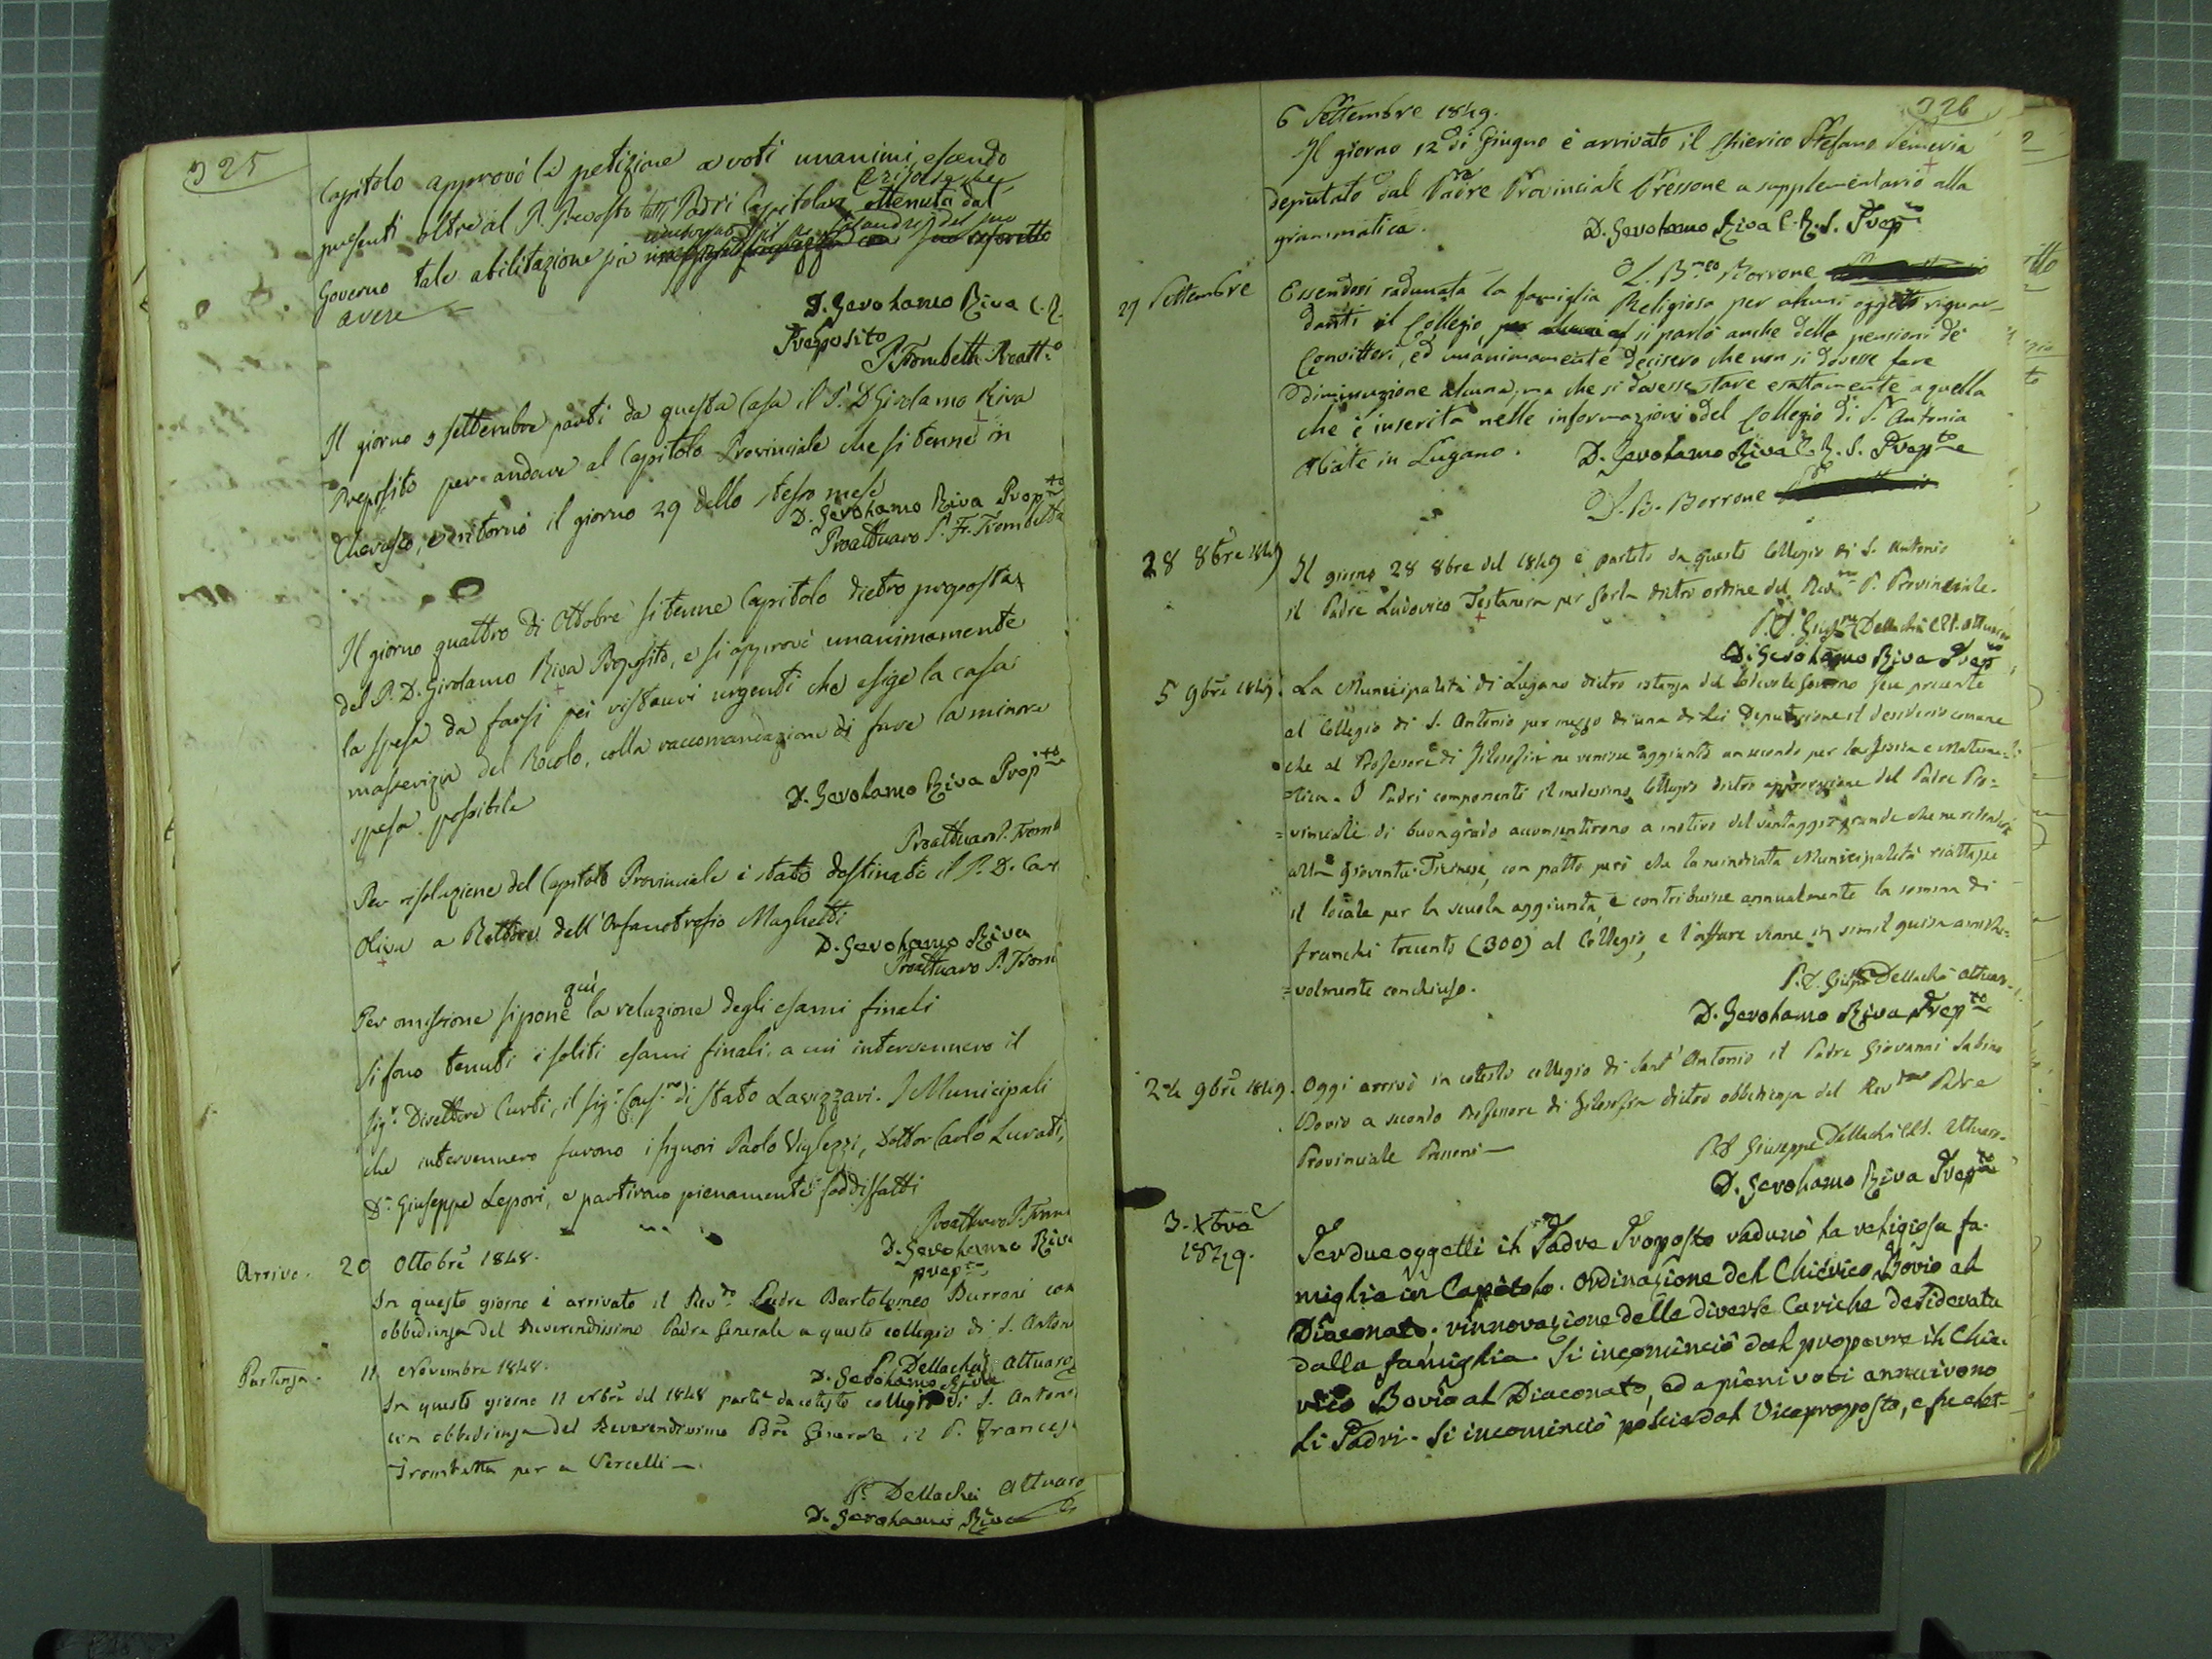 325
Capitolo approvò la petizione a voti unanimi, essendo
presenti oltre al P. Prevosto tutti Padri Capitolari
e risolse che
ottenuta dal
Governo tale abilitazione si
del suo
avere
D. Gerolamo Riva C. R.
Preposito
P. Trombetta Proatt.o
Il giorno 9 settembre partì da questa Casa il P. D Girolamo Riva
Preposito per andare al Capitolo Provinciale che si tenne in
Cherasco, e ritornò il giorno 29 dello stesso mese
D. Gerolamo Riva Prep.to
Proattuaro P. Fr. Trombetta
Il giorno quattro di Ottobre si tenne Capitolo dietro proposta
del P. D. Girolamo Riva Preposito, e si approvò unanimamente
la spesa da farsi pei ristauri urgenti che esige la casa
masserizia del Rocolo, colla raccomandazione di fare la minore
spesa possibile
D. Gerolamo Riva Prop.to
Proattuaro P. Tromb
Per risoluzione del Capitolo Provinciale è stato destinato il P. D. Car
Oliva a Rettore dell'Orfanotrofio Maghetti
D. Gerolamo Riva
Proattuaro P. Trom
qui
Per omissione si pone la relazione degli esami finali
Si sono tenuti i soliti esami finali, a cui intervennero il
Sig.r Direttore Curti, il Sig.r Cons.re di Stato Lavizzari. I Municipali
che intervennero furono i signori Paolo Viglezzi, Dottor Carlo Lurati,
D.r Giuseppe Lepori, e partirono pienamente soddisfatti
Proattuaro P. Trom
D. Gerolamo Riva
prep.to
Arrivo. 20 Ottobre 1848.
In questo giorno è arrivato il Rev.do Padre Bartolomeo Burroni con
obbedienza del Reverendissimo Padre Generale a questo collegio di S. Anton
P. Dellachà Attuaro
D. Gerolamo Riva
Partenza. 11 Novembre 1848.
In questo giorno 11 Nbre del 1848 partì da cotesto collegio di S. Anton
con obbedienza del Reverendissimo Pdre Generale il P. Frances
Trombetta per a Vercelli —
P. Dellachà Attuaro
D. Gerolamo Riva
326
6 Settembre 1849.
Il giorno 12 di Giugno è arrivato il Chierico Stefano Semeria
deputato dal Padre Provinciale Pressone a supplementario alla
grammatica.
D. Gerolamo Riva C. R. S. Prep.to
B.meo Borrone
27 Settembre
Essendosi radunata la famiglia Religiosa per alcuni oggetti riguar-
danti il Collegio, si parlò anche delle pensioni dei
Convittori, ed unanimamente decisero che non si dovesse fare
diminuzione alcuna, ma che si dovesse stare esattamente a quella
che è inserita nelle informazioni del Collegio di S. Antonio
Abate in Lugano.
D. Gerolamo Riva C. R. S. Prep.to
B. Borrone
28 8bre 1849
Il giorno 28 8bre del 1849 è partito da questo Collegio di S. Antonio
il Padre Ludovico Testanera per Gorla dietro ordine del Rev.mo P. Provinciale.
P. D. Gius.pe Dellachà CRS. Attuaro
D. Gerolamo Riva Prep.to
5 9bre 1849.
La Municipalità di Lugano dietro istanza del lodevole Governo feu presente
al Collegio di S. Antonio per mezzo di una di lei Deputazione il desiderio comune
che al Professore di Filosofia ne venisse aggiunto un secondo per la fisica e Matema-
=tica. I Padri componenti il medesimo Collegio dietro approvazione del Padre Pro=
=vinciale di buon grado acconsentirono a motivo del vantaggio grande che ne
alla Gioventù Ticinese, con patto però che la noindicata Municipalità riattasse
il locale per la scuola aggiunta, e contribuisse annualmente la somma di
franchi trecento (300) al Collegio, e l'affare venne in simil guisa amiche=
=volmente conchiuso.
P. D. Gius.pe Dellachà Attuaro
D. Gerolamo Riva Prep.to
24 9bre 1849.
Oggi arrivò in cotesto collegio di Sant'Antonio il Padre Giovanni Sabino
Bovio a secondo Professore di Filosofia dietro obbedienza del Rev.mo Padre
Provinciale Pressoni —
P. D. Giuseppe Dellachà CRS. Attuaro.
D. Gerolamo Riva Prep.to
3. Xbre
1849.
Per due oggetti il Padre Proposto radunò la religiosa fa-
miglia in Capitolo. Ordinazione del Chierico Bovio al
Diaconato; rinnovazione delle diverse Cariche desiderata
dalla famiglia. Si incominciò dal proporre il Chie-
rico Bovio al Diaconato, ed a pieni voti annuirono
li Padri. Si incominciò poscia dal Vicepreposto, e fu elet-